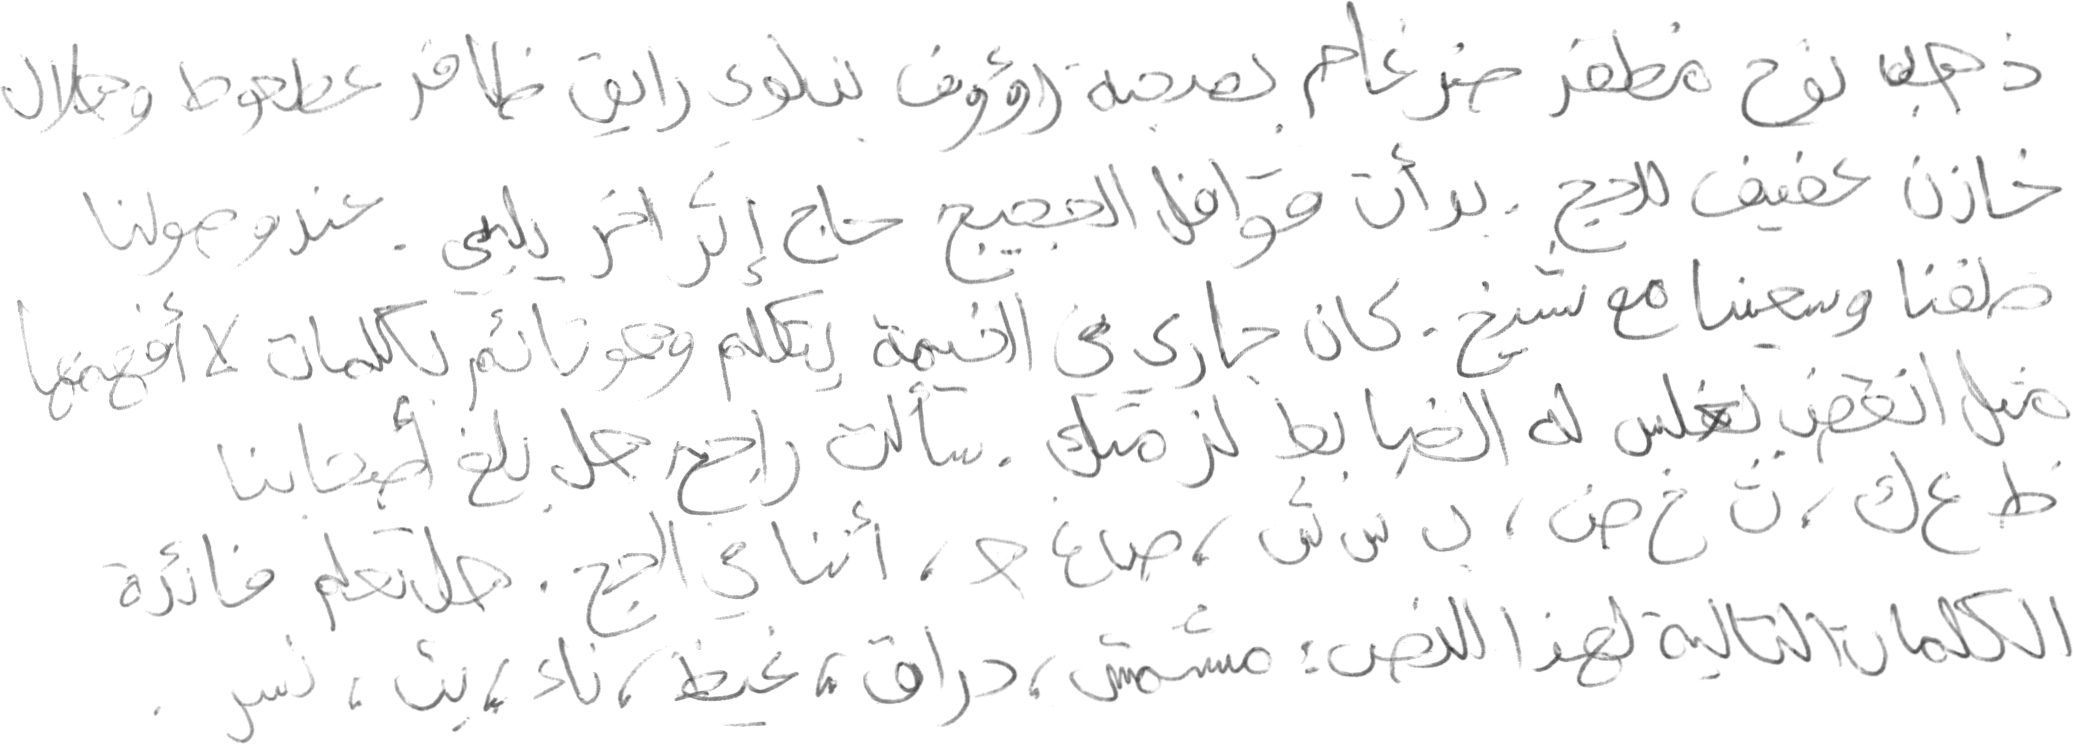 ذهب نوح مظفر ضرغام بصحبة رؤوف بنلوى رايق ظافر عطعوط وهلال
خازن عفيف للحج . بدأت قوافل الحجيج حاج إثر اخر يلبي . عند وصولنا
طفنا وسعينا مع شيخ . كان جاري في الخيمة يتكلم وهو نائم بكلمات لا أفهمها
مثل انقض لغلس له الضابط لزمتك . سألت راجح هل بلغ أصحابنا
ظ ع ك ، ث خ ض ، ب س ش ، صاغ ه ، أننا في الحج . هل تعلم فائدة
الكلمات التالية لهذا النص : مشمش ، دراق ، غيظ ، ناء ، بث ، نسر .